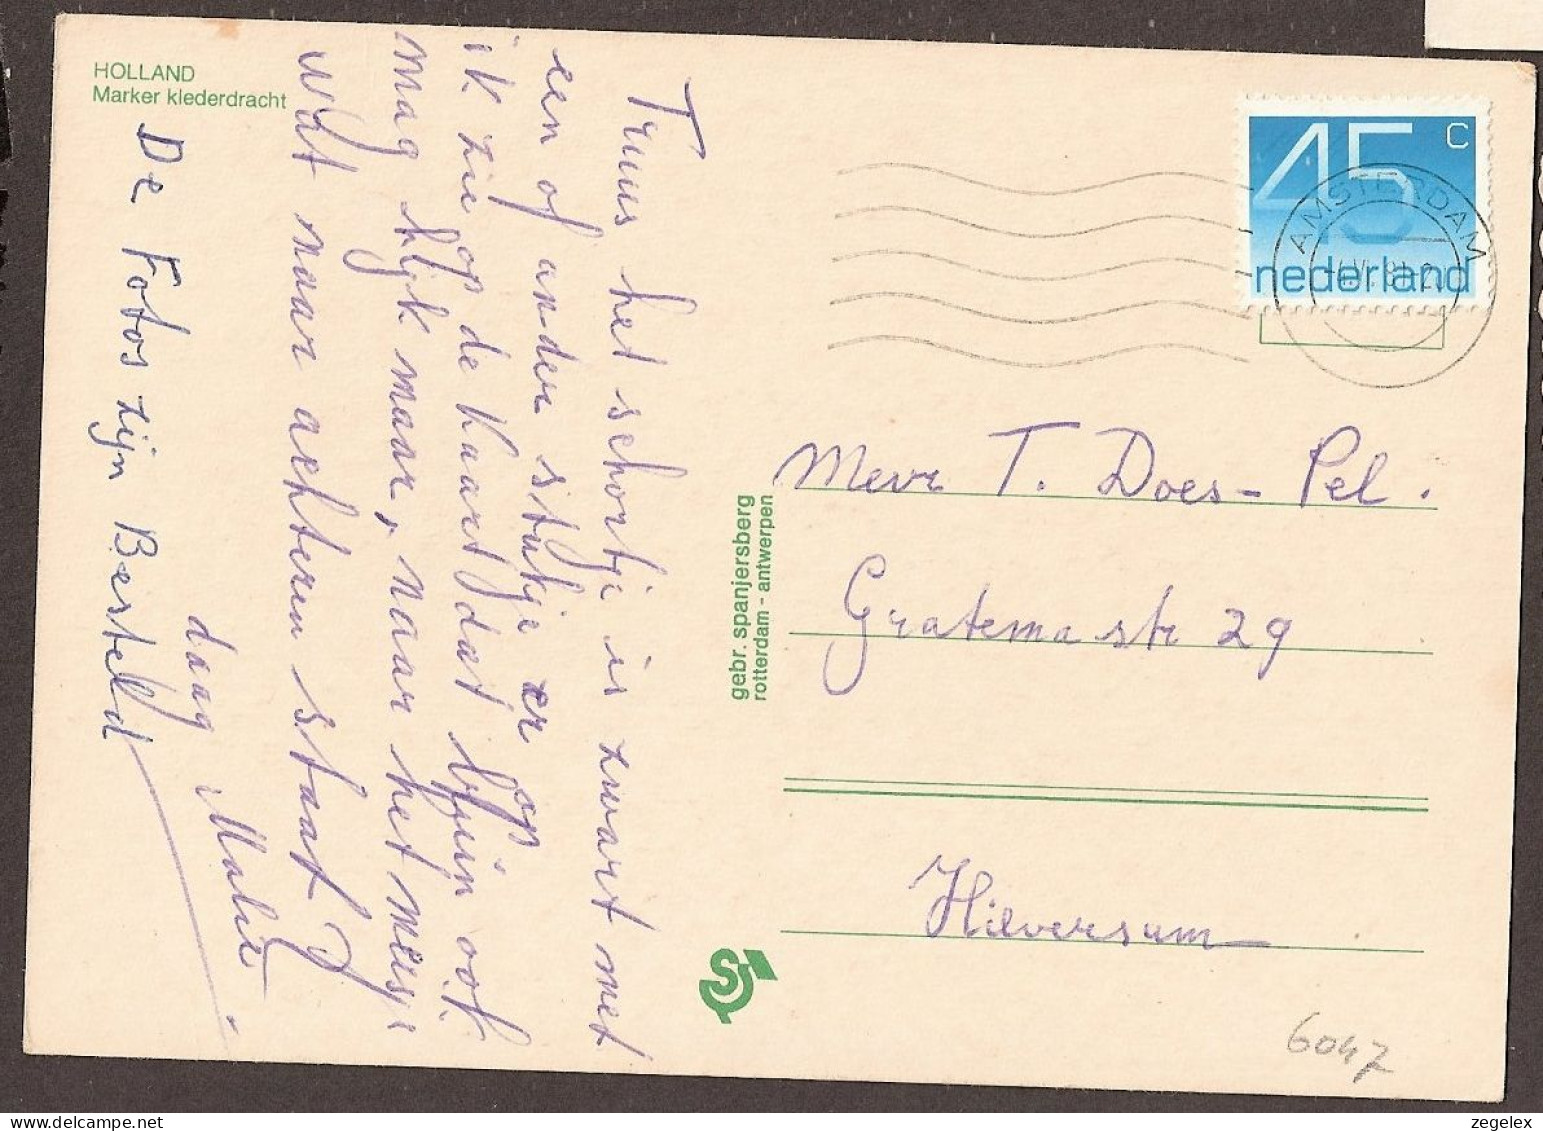 HOLLAND
Marker klederdracht
Truus het schortje is zwart met
een of ander stukje er op
ik zie op de kaart dat bijin ook
mag lijk maar, naar het meisje
wat naar achteren staat
daag
De Fotos zijn Besteld
gebr. spanjersberg
rotterdam - antwerpen
45 c
nederland
AMSTERDAM
Mevr T. Does - Pel.
Gratema str 29
Hilversum
6047
zegelex